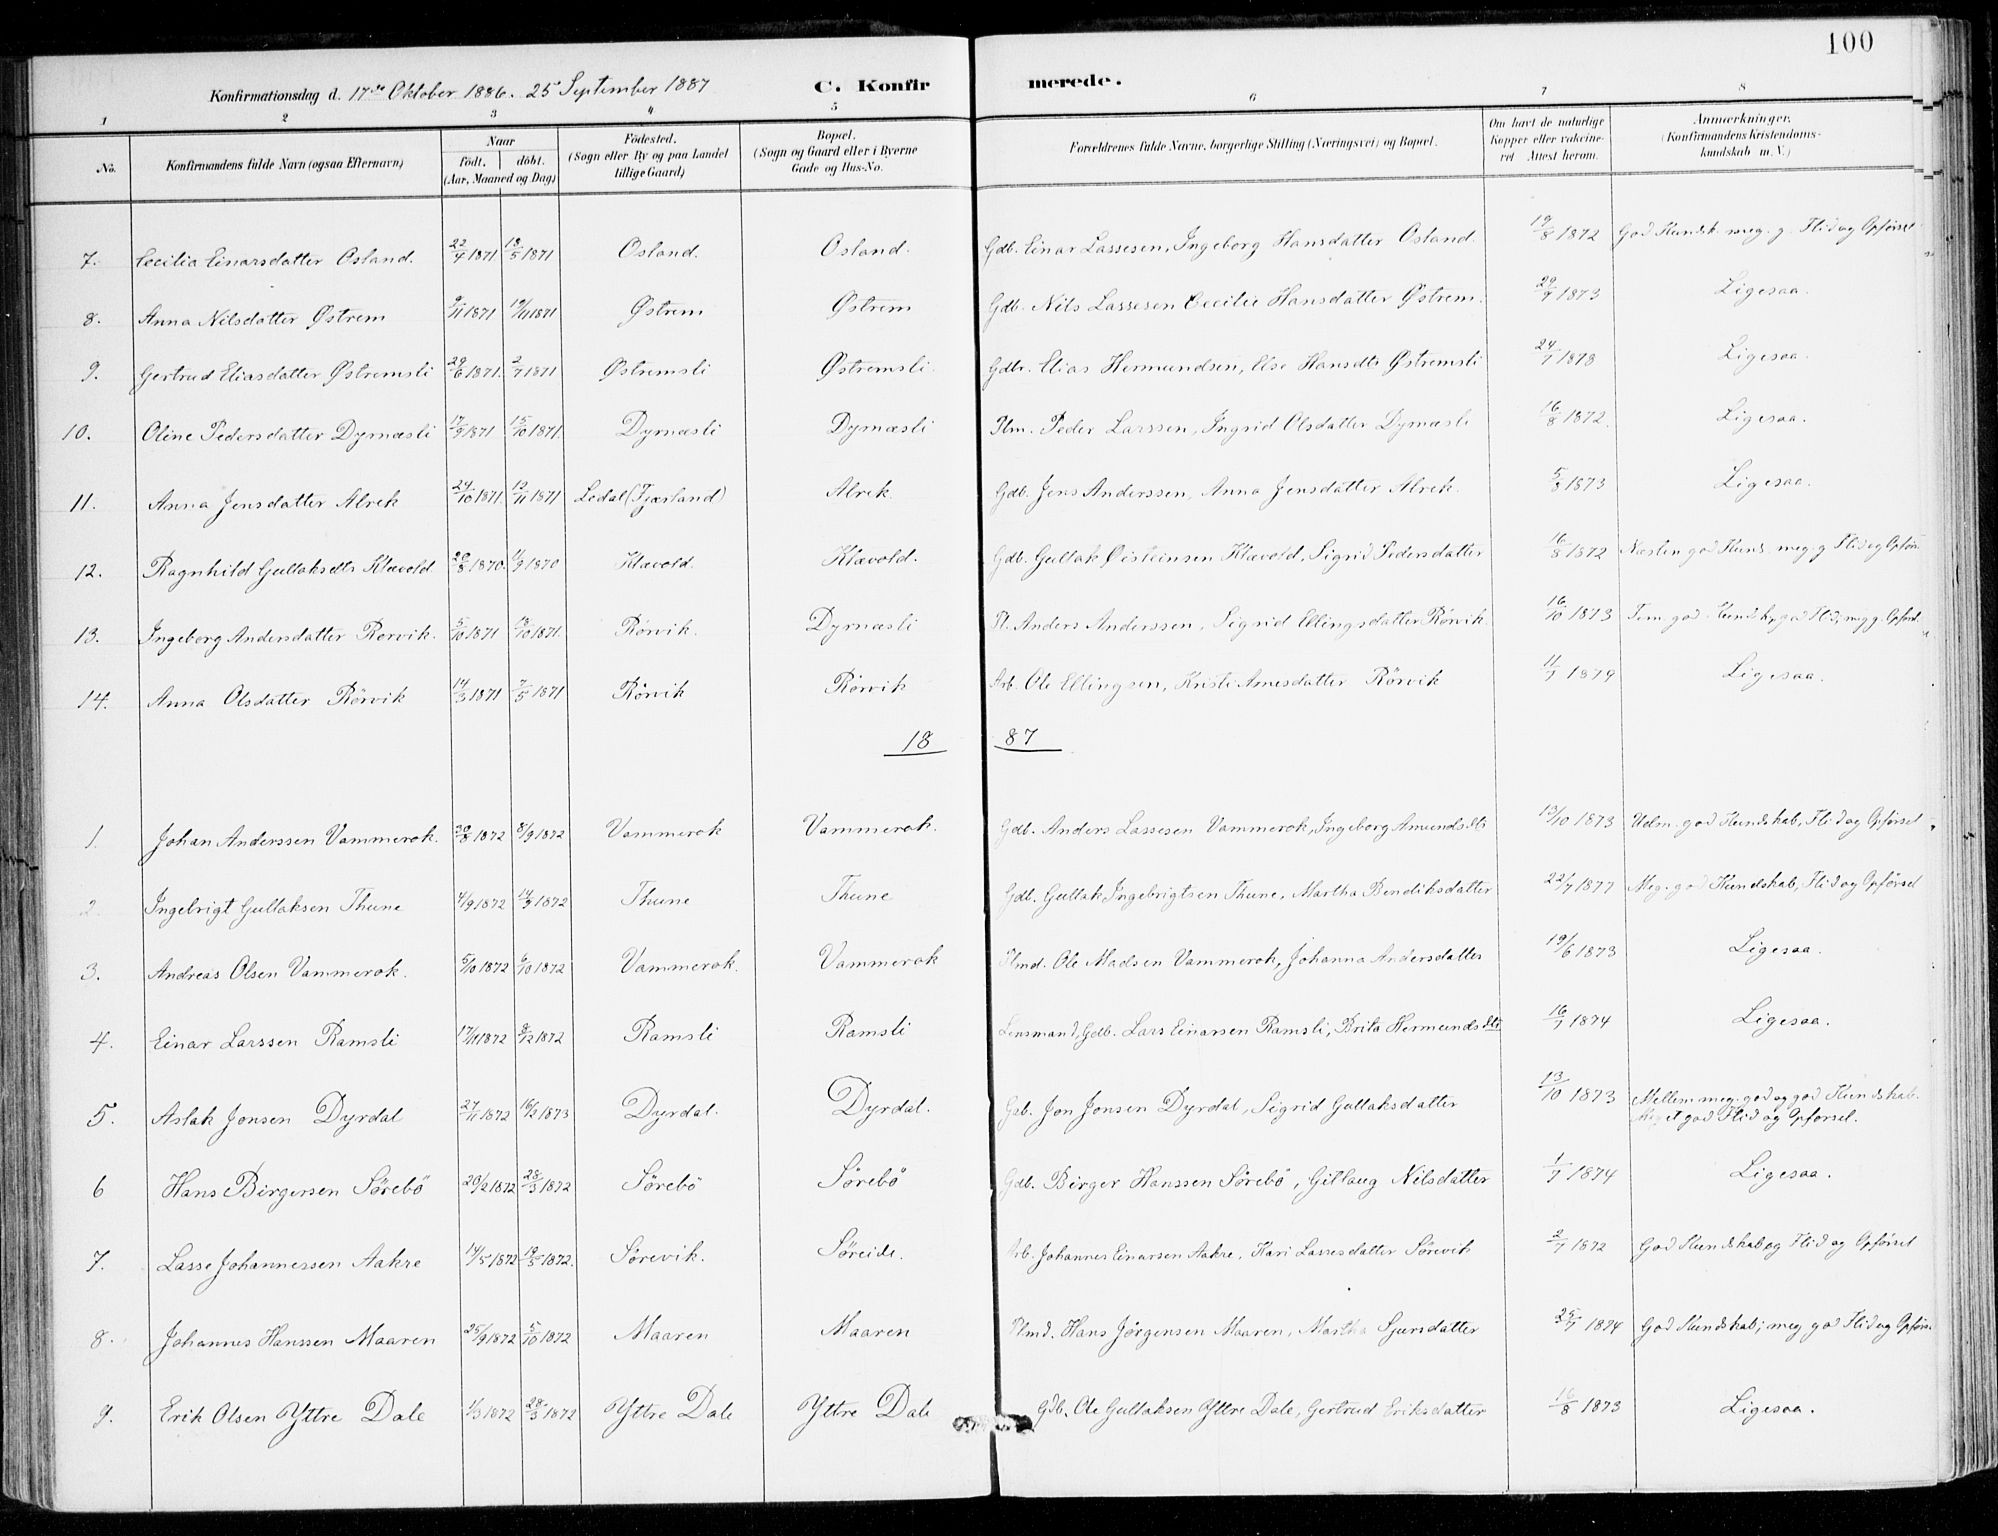 100
Konfirmationsdag d. 17de Oktober 1886. 25 September 1887 C. Konfirmerede.
1 2 3 4 5 6 7 8
No. Konfirmandens fulde Navn (ogsaa Efternavn) Naar födt. döbt. (Aar, Maaned og Dag) Födested. (Sogn eller By og paa Landet tillige Gaard) Bopæl. (Sogn og Gaard eller i Byerne Gade og Hus-No. Forældrenes fulde Navne, borgerlige Stilling (Næringsvei) og Bopæl. Om havt de naturlige Kopper eller vaccineret. Attest herom. Anmærkninger. (Konfirmandens Kristendomskundskab m. V.)
7. Cecilia Einarsdatter Osland. 22/4 1871 18/5 1871 Osland. Osland. Gdb. Einar Lassesen, Ingeborg Hansdatter Osland. 19/8 1872 God Kundsk. meg. g. Flid og Opførsel
8. Anna Nilsdatter Østrem 9/11 1871 19/11 1871 Østrem Østrem Gdb. Nils Lassesen Cecilie Hansdatter Østrem. 29/7 1873 Ligesaa.
9. Gertrud Eliasdatter Østremsli 29/6 1871. 2/7 1871 Østremsli Østremsli. Gdbr. Elias Hermundsen, Else Hansdtr Østremsli 24/7 1878 Ligesaa.
10. Oline Pedersdatter Dyrnæsli 17/9 1871 15/10 1871. Dyrnæsli Dyrnæsli Plm. Peder Larssen, Ingrid Olsdatter Dyrnæsli 16/8 1872. Ligesaa.
11. Anna Jensdatter Alrek 24/10 1871. 12/11 1871 Ledal (Fjærland) Alrek. Gdb. Jens Anderssen, Anna Jensdatter Alrek. 5/8 1873 Ligesaa.
12. Ragnhild Gullaksdtr Klævold 20/8 1870. 4/9 1870 Klævold. Klævold. Gdb. Gullak Øisteinsen Klævold, Sigrid Pedersdatter 16/8 1872 Næsten god Kunds. meg. g Flid og Opfør.
13. Ingeborg Andersdatter Rørvik. 5/10 1871 8/10 1871. Rörvik. Dyrnæsli Pl. Anders Anderssen, Sigrid Ellingsdatter Rörvik. 16/10 1873 Tem. god Kundsk, god Flid; meg g. Opførs.
14. Anna Olsdatter Rörvik 14/3 1871 7/5 1871 Rörvik Rörvik Arb. Ole Ellingsen, Kristi Arnesdatter Rörvik 11/7 1879 Ligesaa.
18 87
1. Johan Anderssen Vammerok. 20/8 1872 8/9 1872 Vammerok Vammerok. Gdb. Anders Lassesen Vammerok, Ingeborg Amundsdtr 13/10 1873 Udm. god Kundskab, Flid og Opførsel
2. Ingebrigt Gullaksen Thune 4/9 1872 14/9 1872 Thune Thune Gdb. Gullak Ingebrigtsen Thune, Martha Bendiksdatter 22/7 1877 Meg. god Kundskab, Flid og Opförsel
3. Andreas Olsen Vammerok. 5/10 1872 6/10 1872 Vammerok. Vammerok Plmd. Ole Madsen Vammerok, Johanna Andersdatter 19/6 1873 Ligesaa.
4. Einar Larssen Ramsli 17/11 1872 8/12 1872 Ramsli Ramsli Lensmand, Gdb. Lars Einarsen Ramsli, Brita Hermundsdtr 16/7 1874 Ligesaa.
5. Aslak Jonsen Dyrdal 27/11 1872 16/2 1873 Dyrdal. Dyrdal. Gdb. Jon Jonsen Dyrdal, Sigrid Gullaksdatter 13/10 1873 Mellem meg. god og god Kundskab.
Meget god Flid og Opførsel.
6 Hans Birgersen Sörebö 20/2 1872 28/3 1872 Sörebö Sörebö Gdb. Birger Hanssen Sörebö, Gitlaug Nilsdatter 1/7 1874 Ligesaa.
7. Lasse Johannessen Aakre 14/5 1872 19/5 1872. Sörevik. Söreide. Arb. Johannes Einarsen Aakre, Kari Lassesdatter Sörevik 2/7 1872 God Kundskab og Flid og Opførsel
8. Johannes Hanssen Maaren 25/9 1872 5/10 1872 Maaren Maaren Plmd. Hans Jörgensen Maaren, Martha Sjursdatter 25/7 1874 God Kundskab; meg god Flid og Opførs.
9. Erik Olsen Yttre Dale 1/3 1872 28/3 1872 Yttre Dale Yttre Dale Gdb. Ole Gullaksen Yttre Dale, Gertrud Eriksdatter 16/8 1873 Ligesaa.